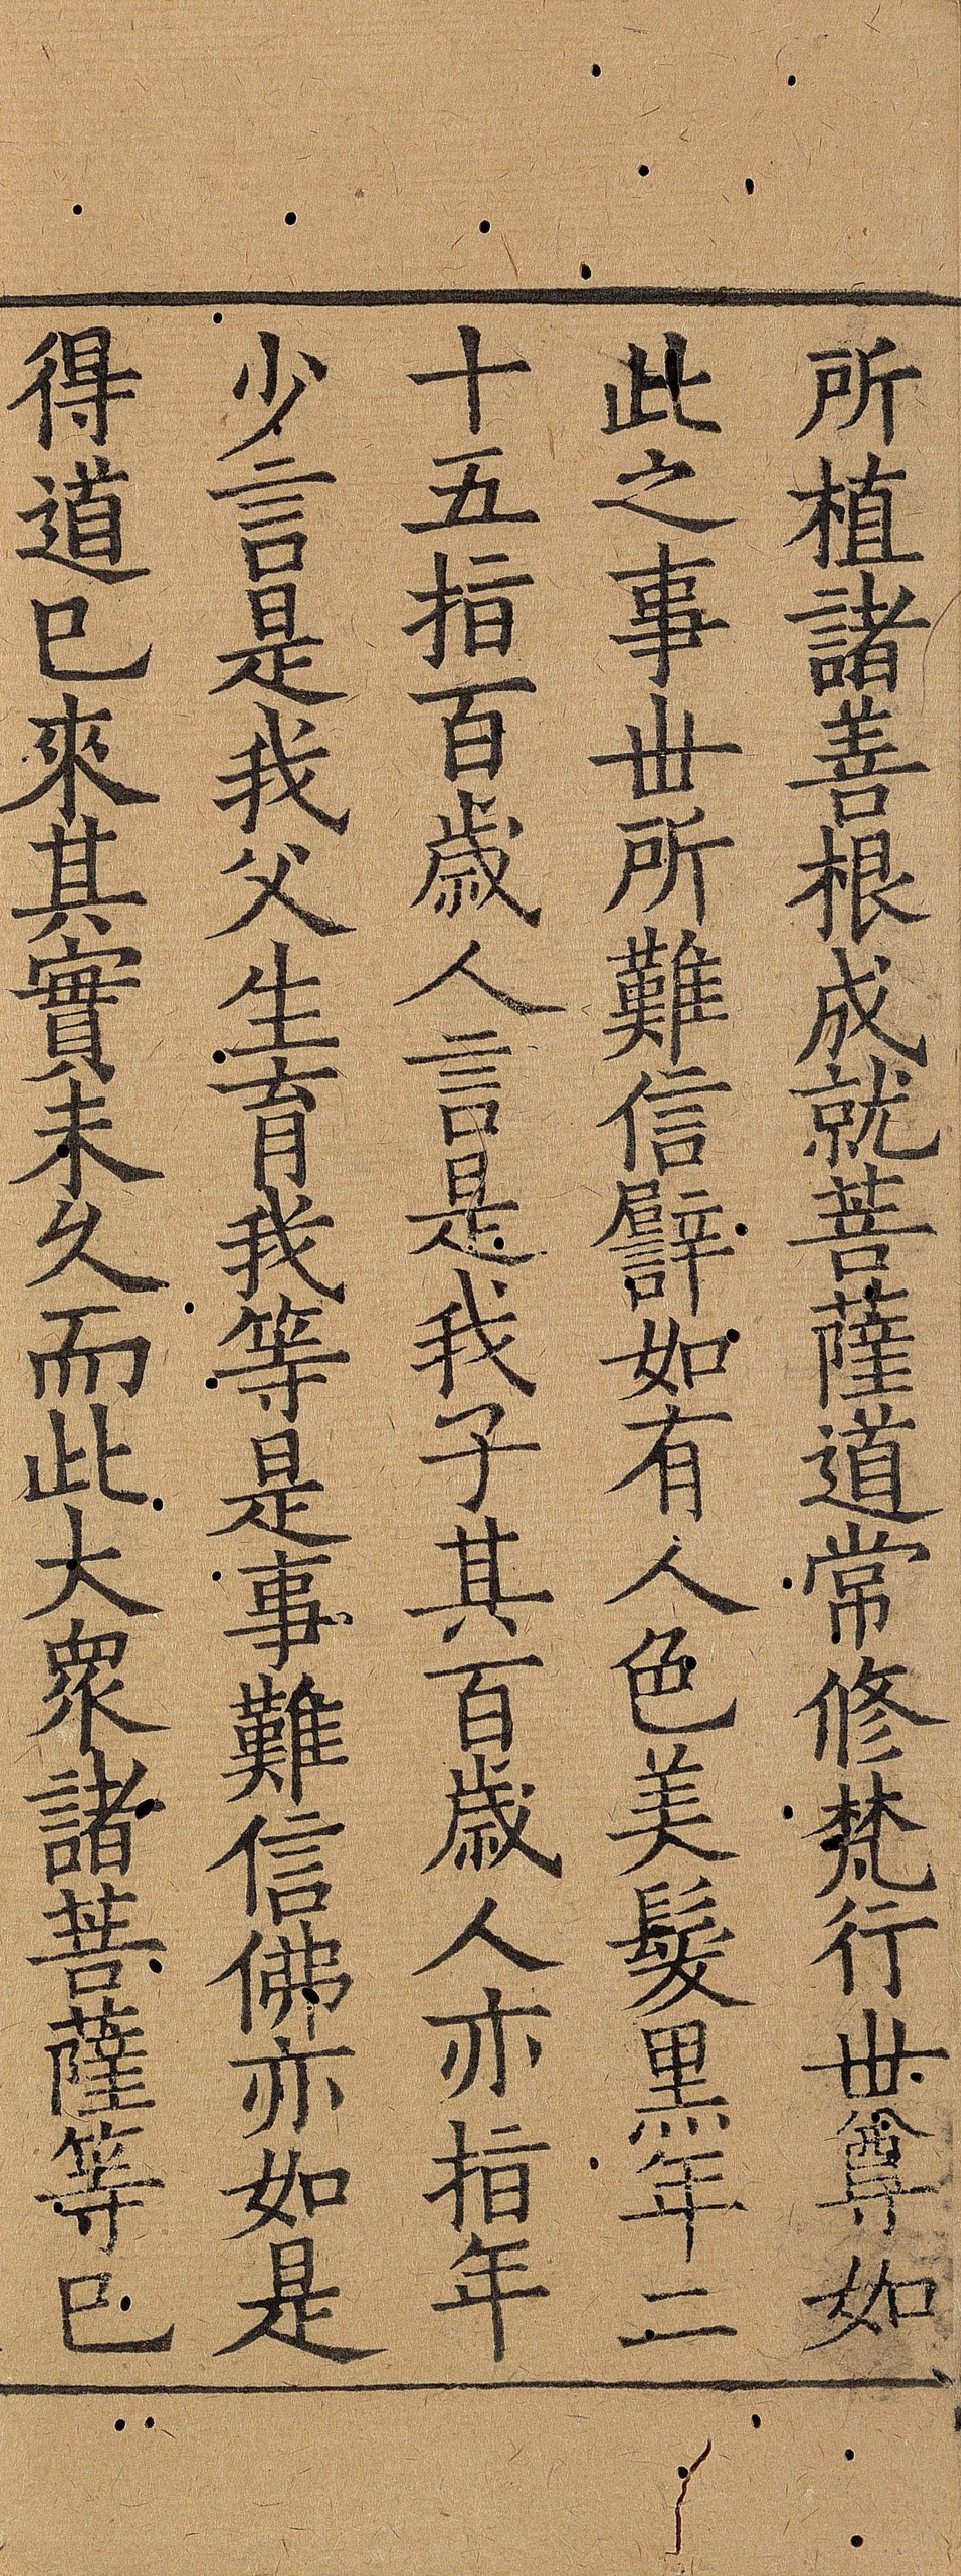 所植諸善根成就菩薩道常修梵行世尊如
此之事世所難信譬如有人色美髮黑年二
十五指百歲人言是我子其百歲人亦指年
少言是我父生育我等是事難信佛亦如是
得道已來其實未久而此大眾諸菩薩等已